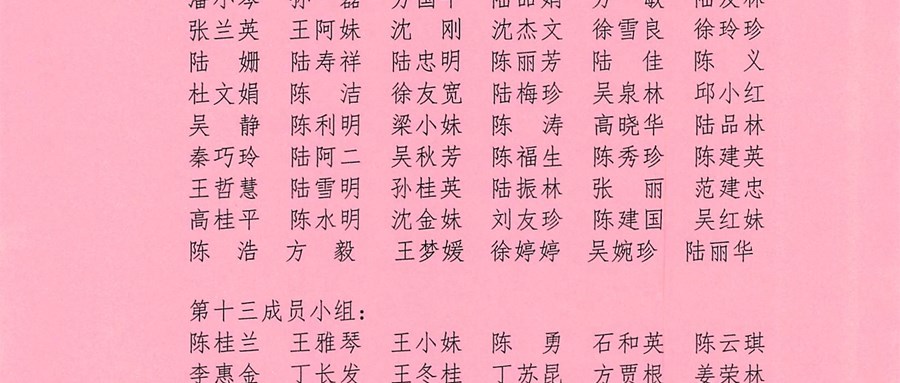 张兰英 王阿妹 沈 刚 沈杰文 徐雪良 徐玲珍
陆 姗 陆寿祥 陆忠明 陈丽芳 陆 佳 陈 义
杜文娟 陈 洁 徐友宽 陆梅珍 吴泉林 邱小红
吴 静 陈利明 梁小妹 陈 涛 高晓华 陆品林
秦巧玲 陆阿二 吴秋芳 陈福生 陈秀珍 陈建英
王哲慧 陆雪明 孙桂英 陆振林 张 丽 范建忠
高桂平 陈水明 沈金妹 刘友珍 陈建国 吴红妹
陈 浩 方 毅 王梦媛 徐婷婷 吴婉珍 陆丽华
第十三成员小组：
陈桂兰 王雅琴 王小妹 陈 勇 石和英 陈云琪
李惠金 丁长发 王冬桂 丁苏昆 方贾根 姜荣林